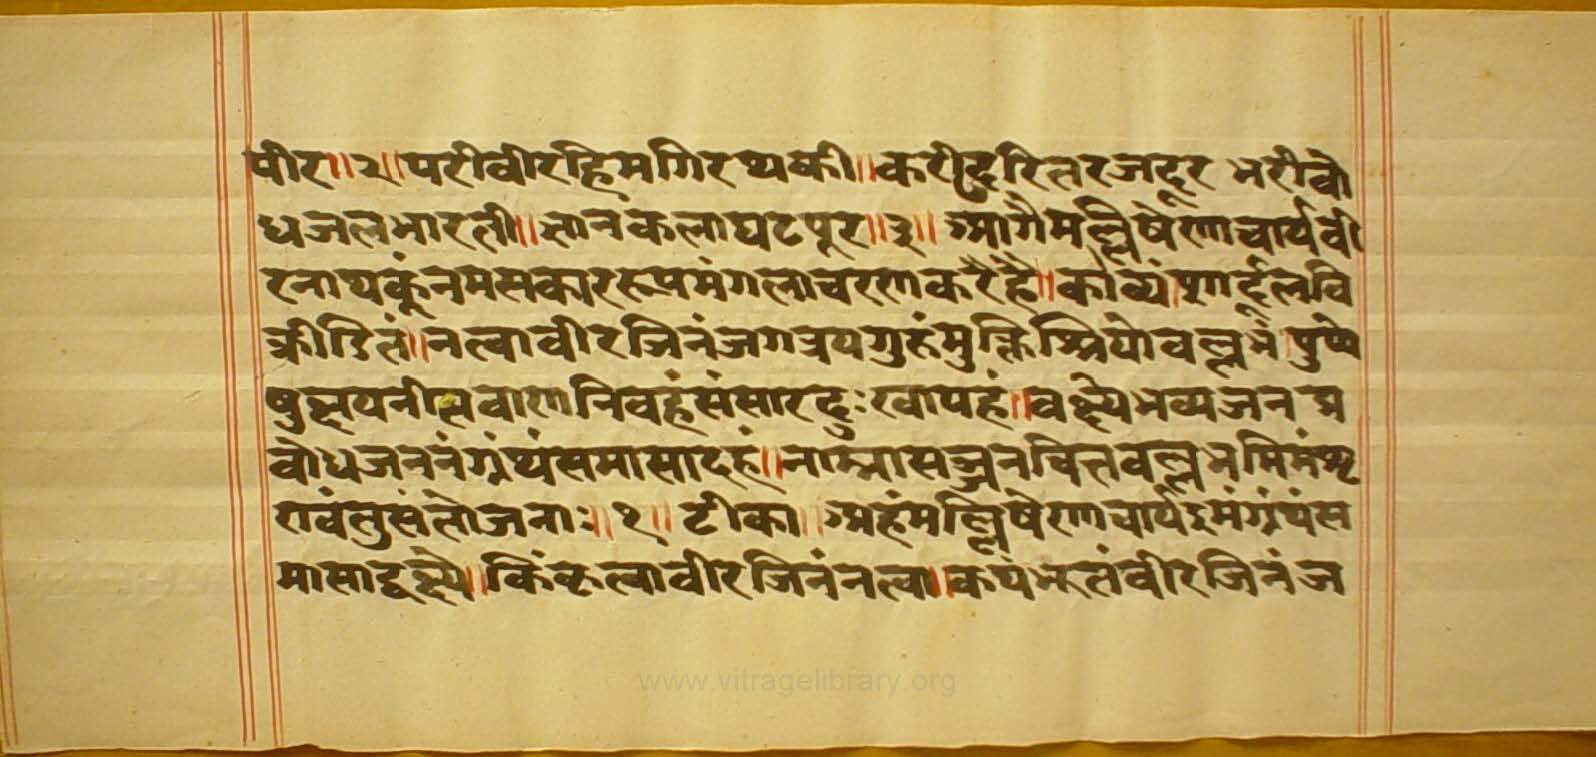 पीर॥२॥परीवीरहिमगिरथकी॥करीदुरितरजदूरभरीवो
धजलभारती॥ज्ञानकलाघटपूर॥३॥आगैमल्लिषेणाचार्यवी
रनाथकूंनमसकाररूपमंगलाचरणकरैहै॥काव्यं॥शार्दूलवि
क्रीडितं॥नत्वावीरजिनंजगत्रयगुरुंमुक्तिश्रियोवल्लभं॥पुष्पे
षुक्षयनीलवाणनिवहंसंसारदुःखापहं॥वक्ष्येभव्यजनप्र
वोधजननंग्रंथंसमासादहं॥नाम्नासज्जनचित्तवल्लभमिमंशृ
ण्वंतुसंतोजनाः॥१॥टीका॥अहंमल्लिषेणाचार्यइमंग्रंथंस
मासाद्वक्ष्ये॥किंकृत्वावीरजिनंनत्वा॥कथंभूतंवीरजिनंज
www.vitragelibrary.org